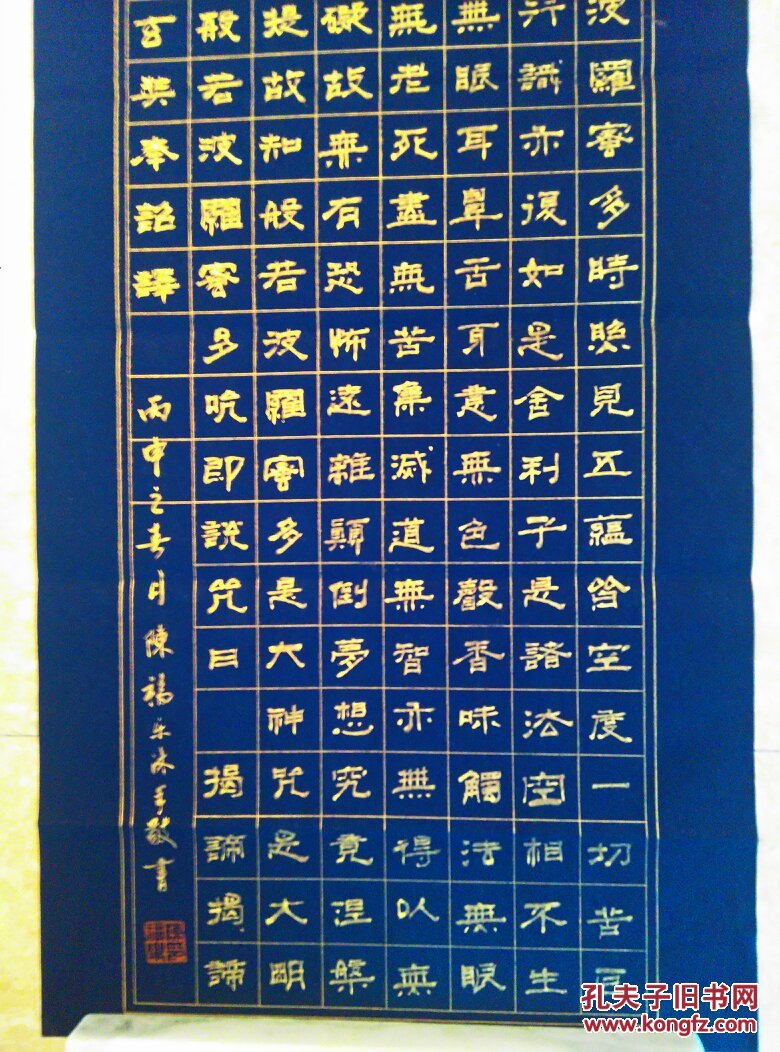 波羅蜜多時照見五蘊皆空度一切苦厄
行識亦復如是舍利子是諸法空相不生
無眼耳鼻舌身意無色聲香味觸法無眼
無老死盡無苦集滅道無智亦無得以無
礙故無有恐怖遠離顛倒夢想究竟涅槃
提故知般若波羅蜜多是大神咒是大明
般若波羅蜜多咒即說咒曰 揭諦揭諦
玄奘奉詔譯
丙申之春月陳福乐沐手敬書
孔夫子旧书网
www.kongfz.com